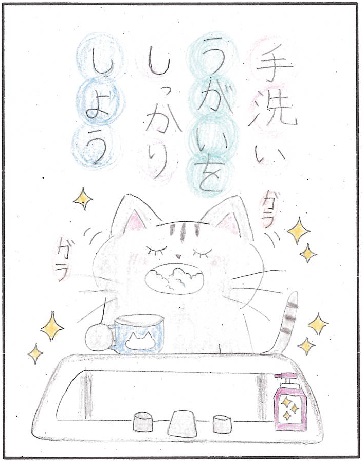 手洗い
うがいを
しっかり
しよう
ガラ
ガラ